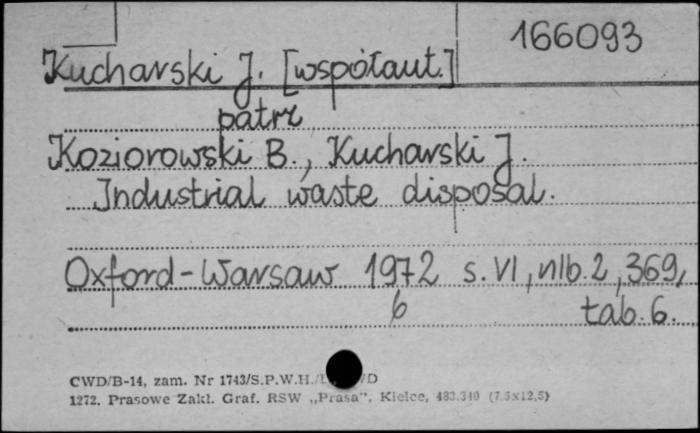 166093
Kucharski J. [współaut.]
patrz
Koziorowski B., Kucharski J.
Industrial waste disposal.
Oxford-Warsaw 1972 s. VI, nlb. 2, 369,
6 tab. 6.
CWD/B-14, zam. Nr 1743/S.P.W.H./ /D
1272. Prasowe Zakł. Graf. RSW „Prasa", Kielce, 483.340 (7.5x12,5)